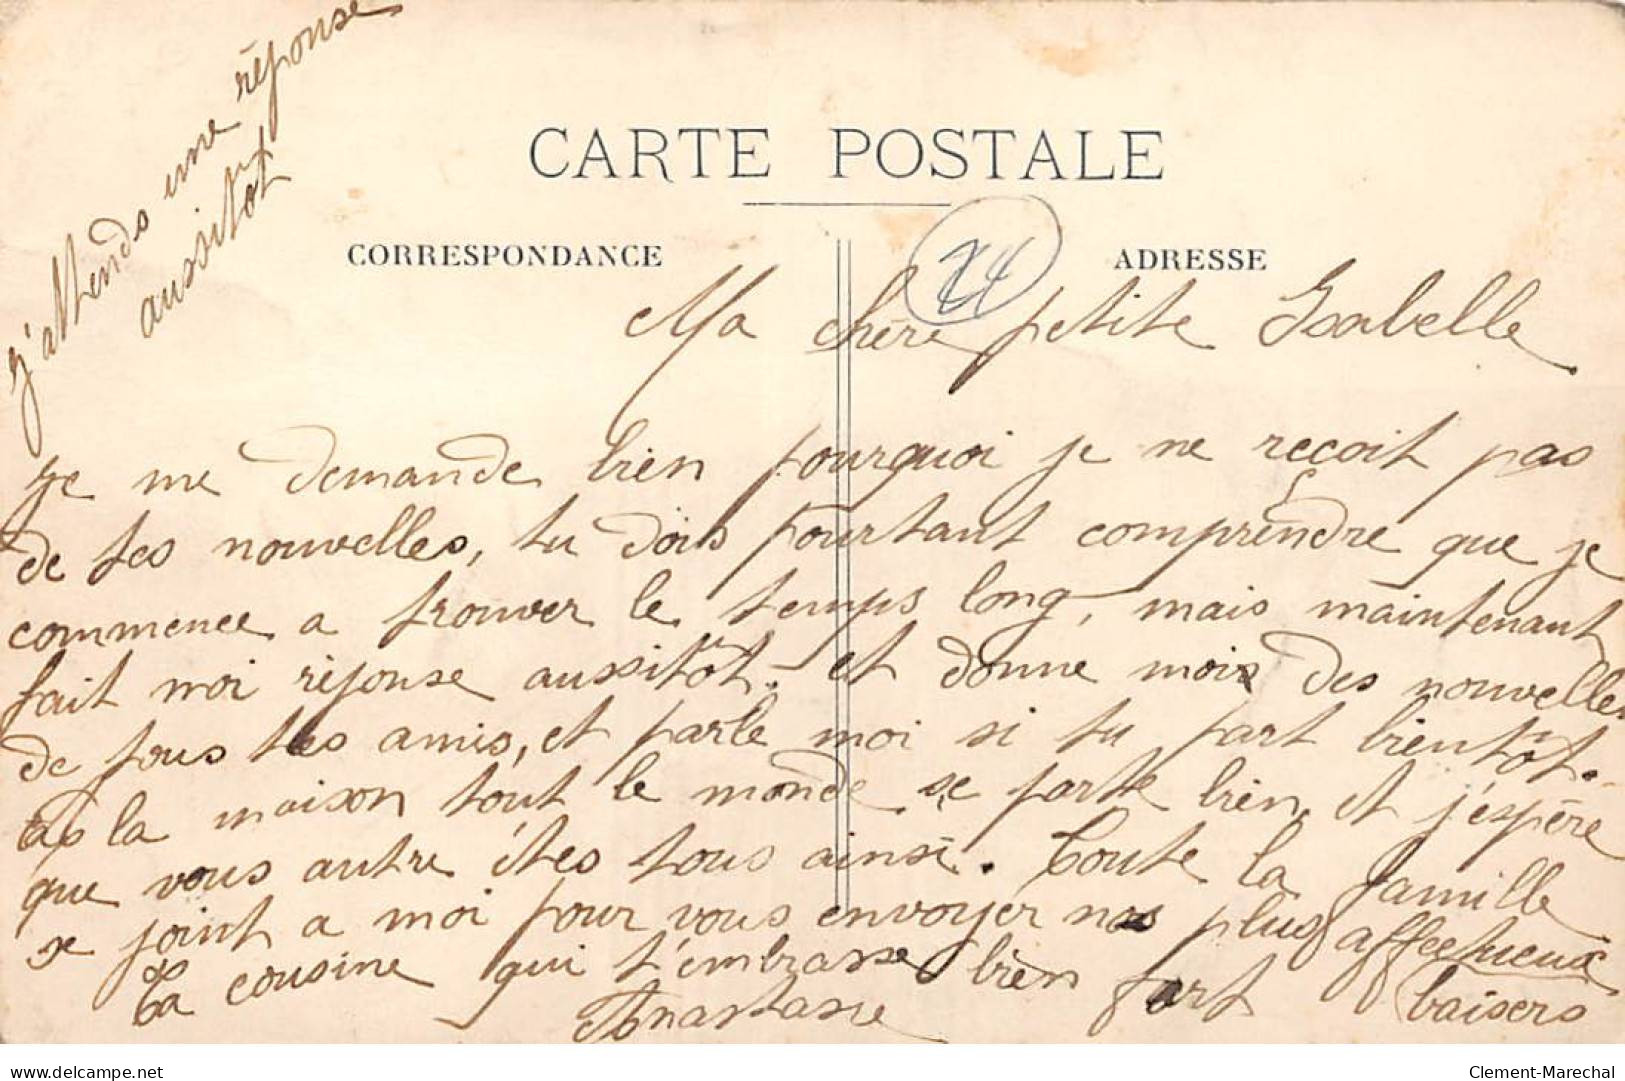 j'attends une réponse
aussitôt
CARTE POSTALE
CORRESPONDANCE
24
ADRESSE
Ma chère petite Isabelle
Je me demande bien pourquoi je ne reçoit pas
de tes nouvelles, tu dois pourtant comprendre que je
commence a trouver le temps long, mais maintenant
fait moi réponse aussitôt. et donne mois des nouvelles
de tous tes amis, et parle moi si tu part bientôt.
la maison tout le monde se porte bien, et j'espère
que vous autre êtes tous ainsi. Toute la famille
se joint a moi pour vous envoyer nos plus affectueux
baisers
Ta cousine qui t'embrasse bien fort
Anastasie
Clement-Marechal